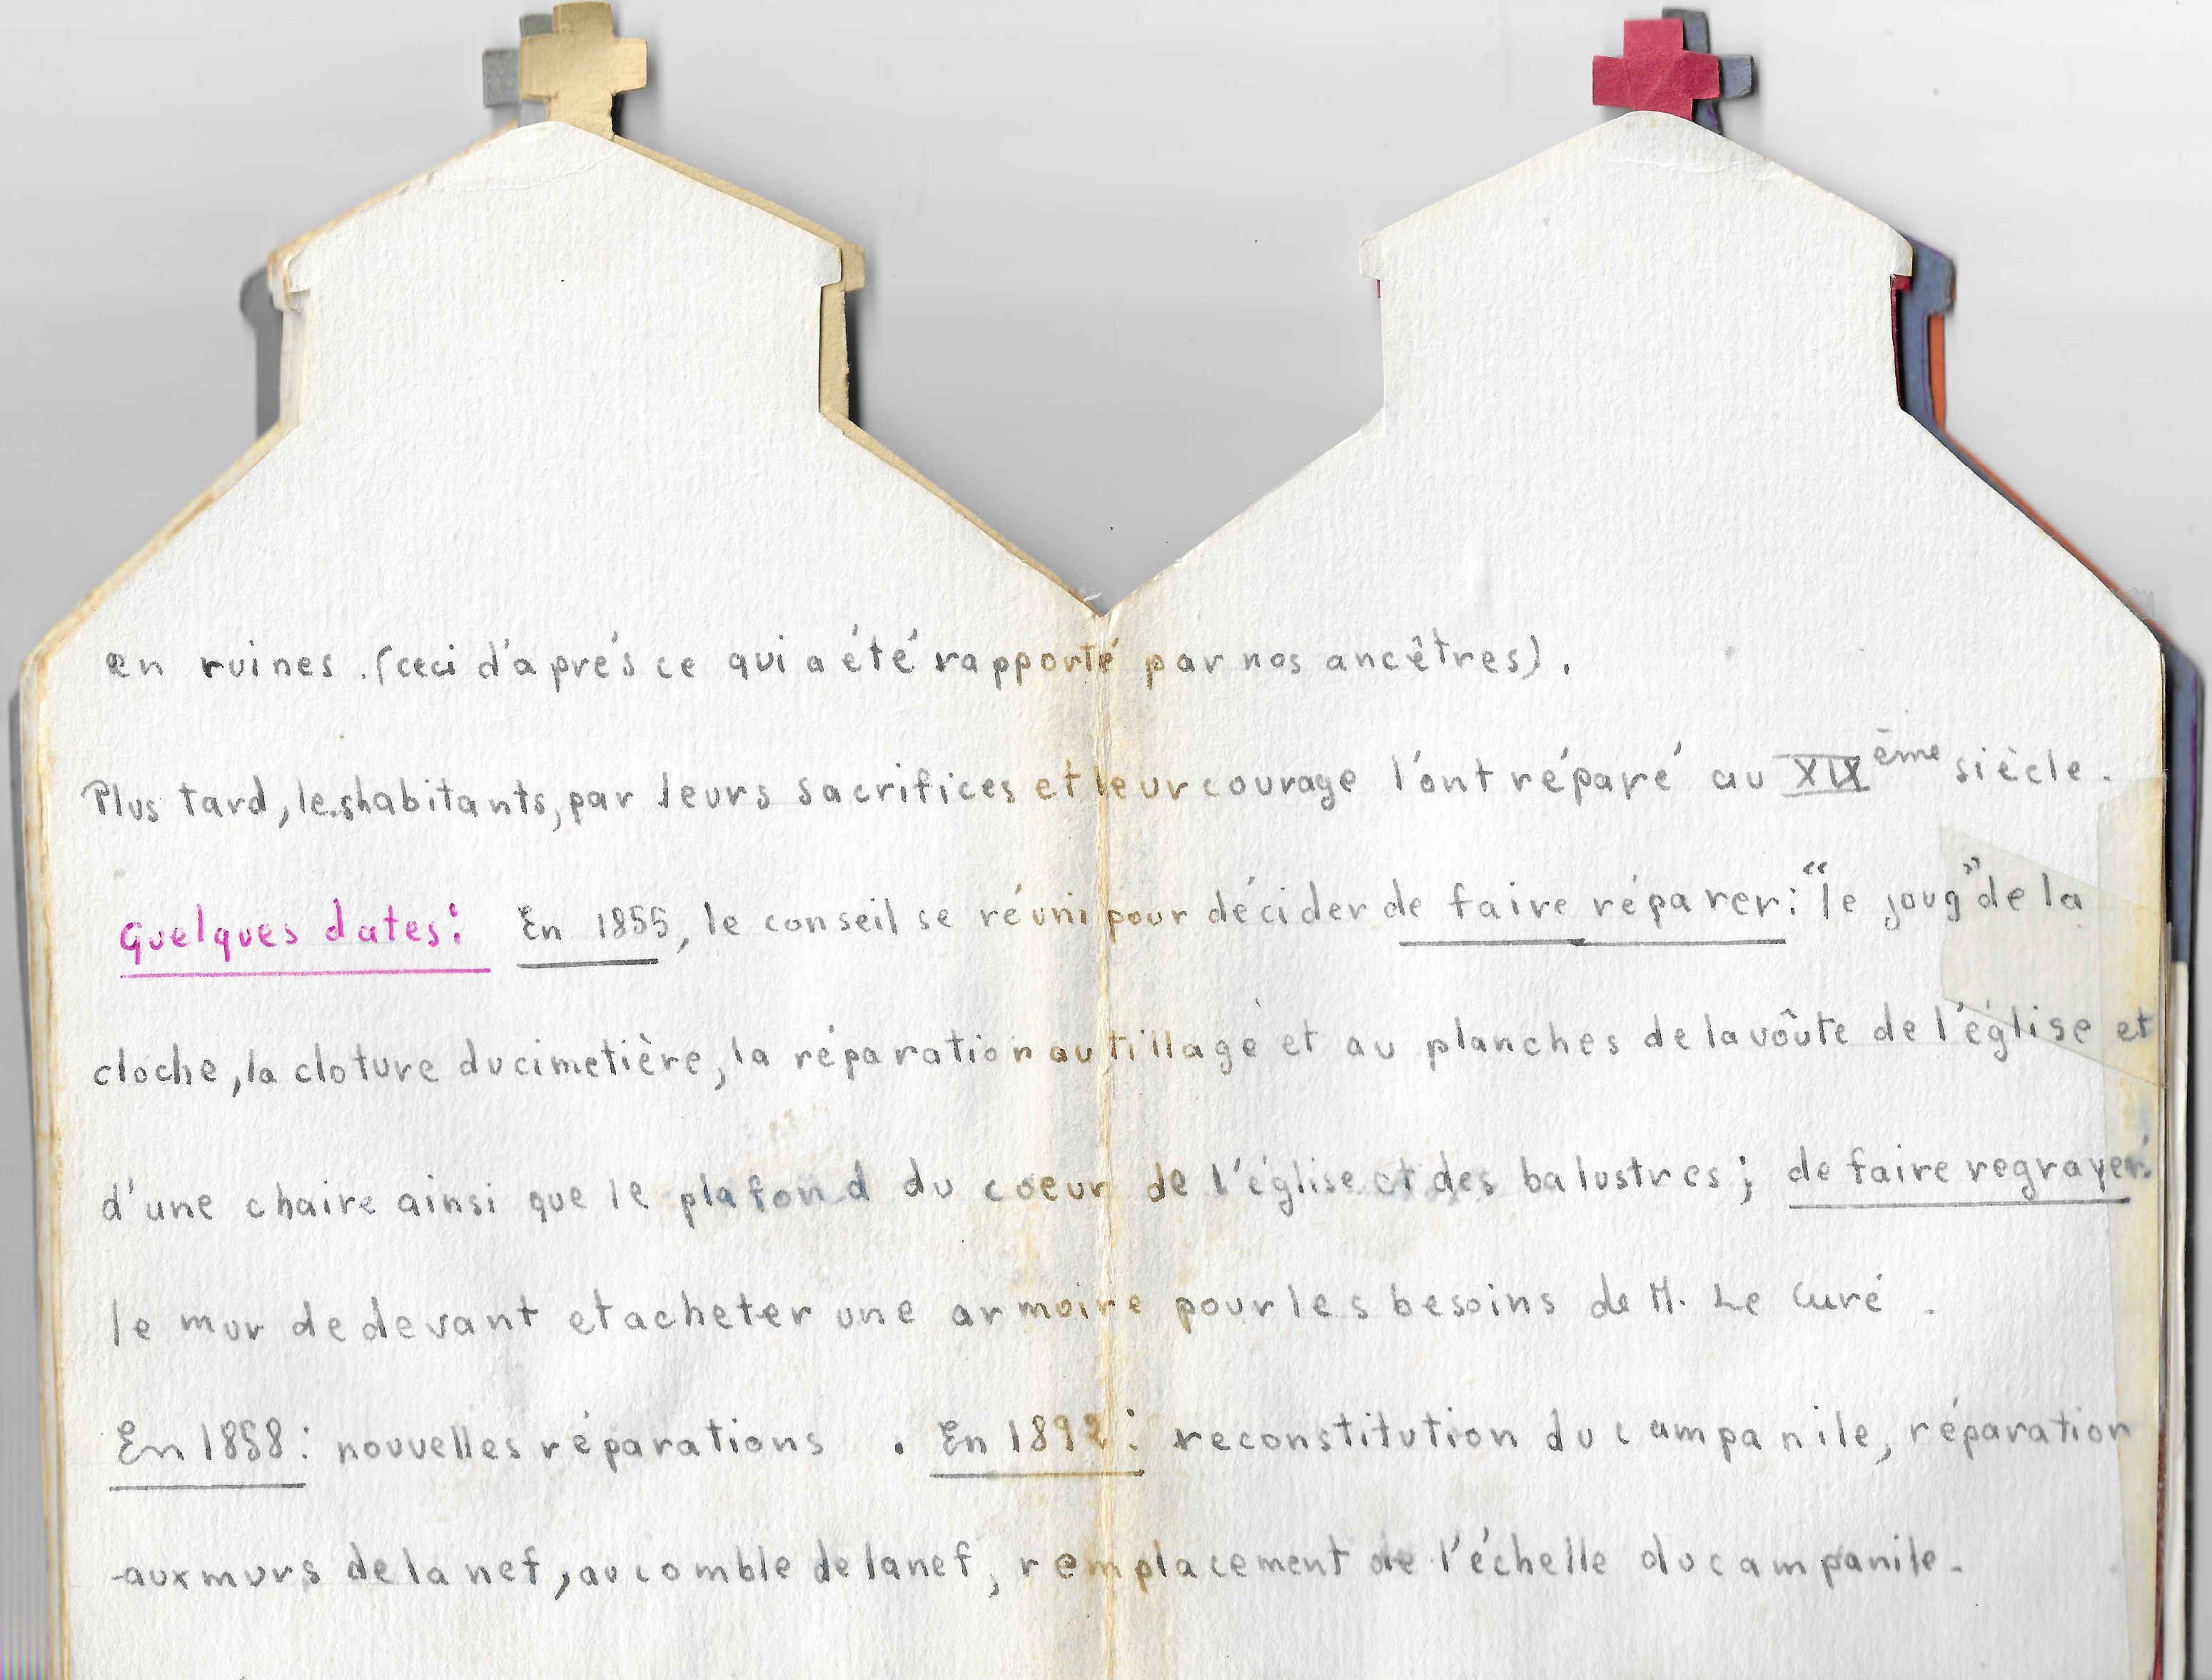 en ruines. (ceci d'aprés ce qui a été rapporté par nos ancêtres).
Plus tard, les habitants, par leurs sacrifices et leur courage l'ont réparé au XIX ème siècle.
Quelques dates: En 1855, le conseil se réuni pour décider de faire réparer: "le joug" de la
cloche, la cloture du cimetière, la réparation au tillage et au planches de la voûte de l'église et
d'une chaire ainsi que le plafond du coeur de l'église et des balustres; de faire regrayer:
le mur de devant et acheter une armoire pour les besoins de M. Le Curé.
En 1858: nouvelles réparations. En 1892: reconstitution du campanile, réparation
aux murs de la nef, au comble de la nef, remplacement de l'échelle du campanile.